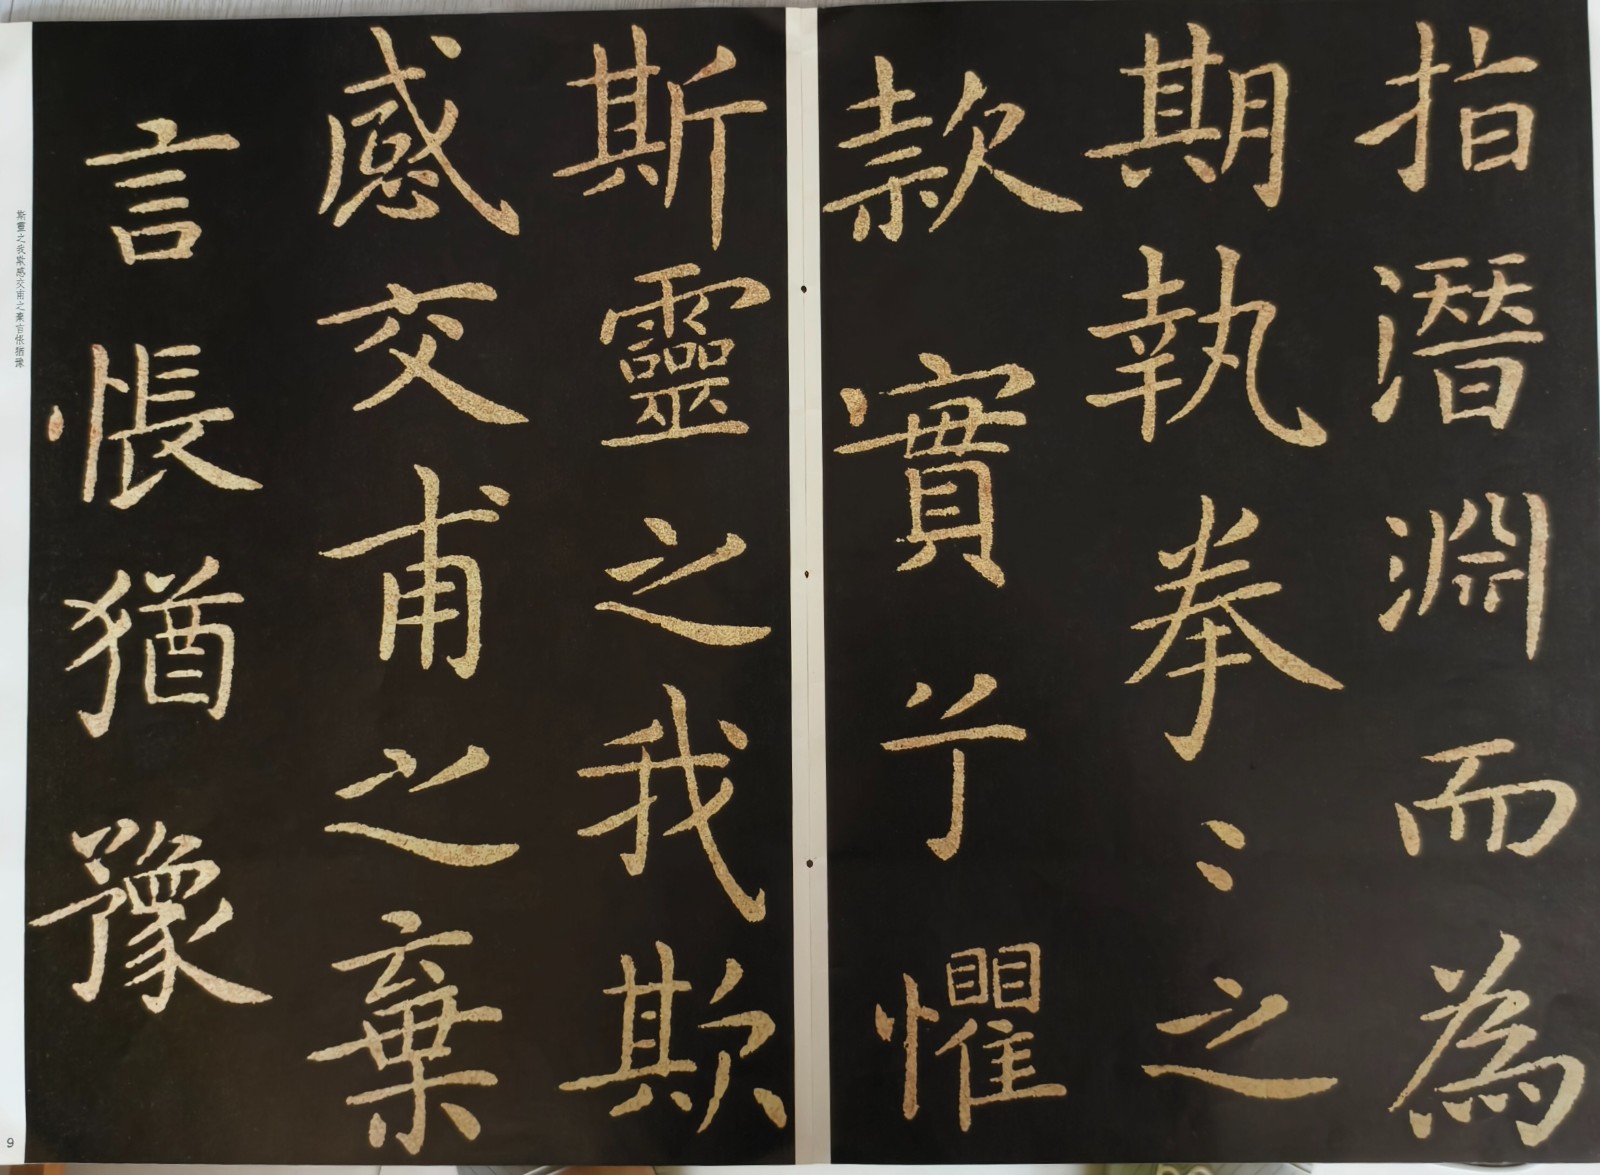 指潛淵而為
期執拳〻之
款實兮懼
斯靈之我欺
感交甫之棄
言悵猶豫
斯靈之我欺感交甫之棄言悵猶豫
9